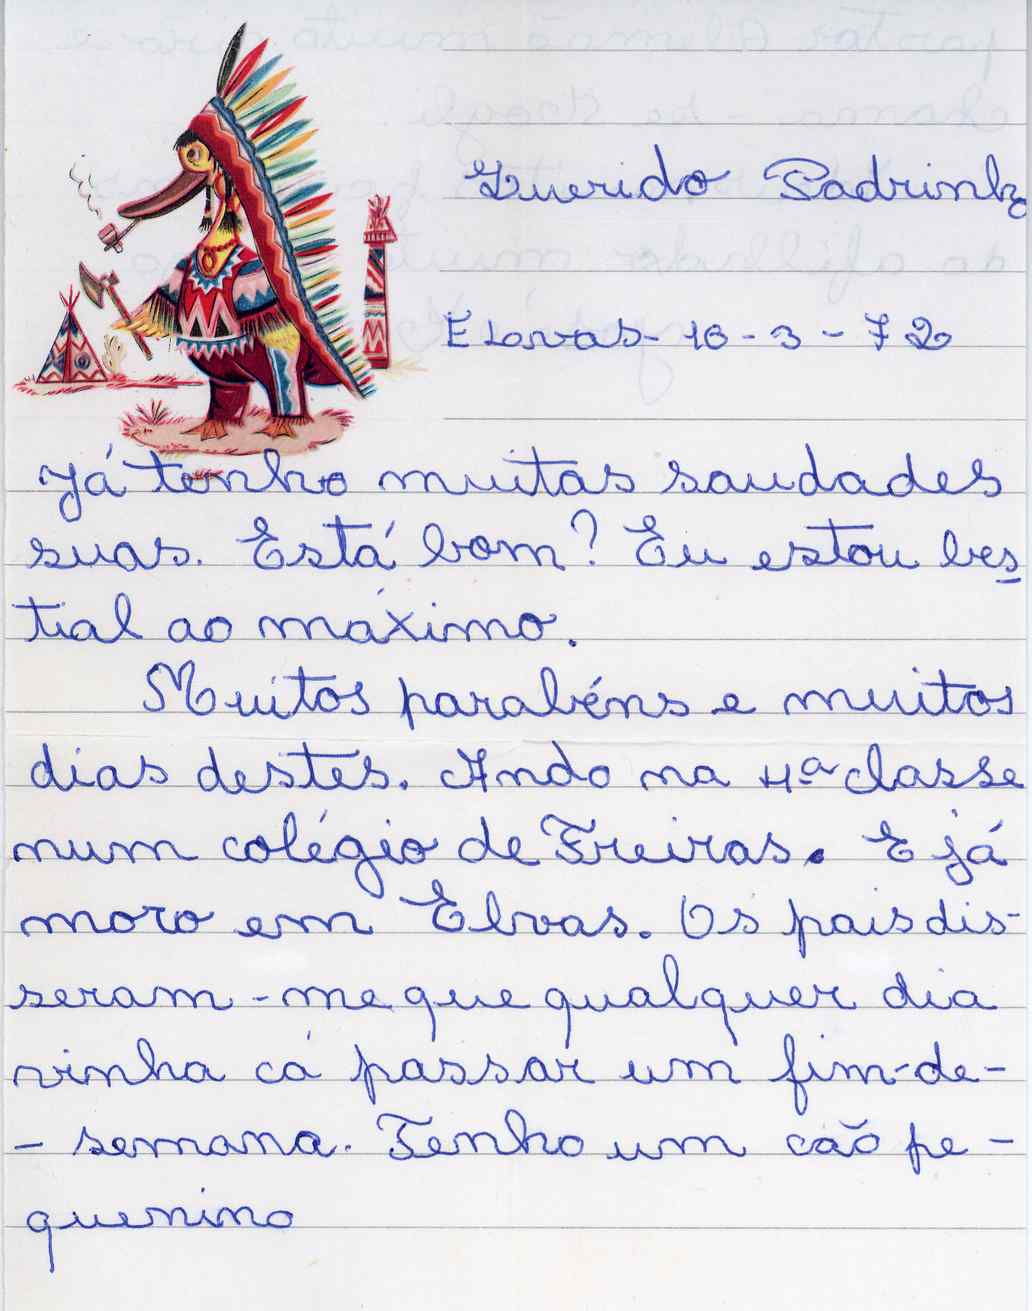 Querido Padrinho
Elvas - 16 - 3 - 72
Já tenho muitas saudades
suas. Está bom? Eu estou bes
tial ao máximo.
Muitos parabéns e muitos
dias destes. Ando na 4ª classe
num colégio de Freiras. E já
moro em Elvas. Os pais dis-
seram-me que qualquer dia
vinha cá passar um fim-de-
- semana. Tenho um cão pe-
quenino